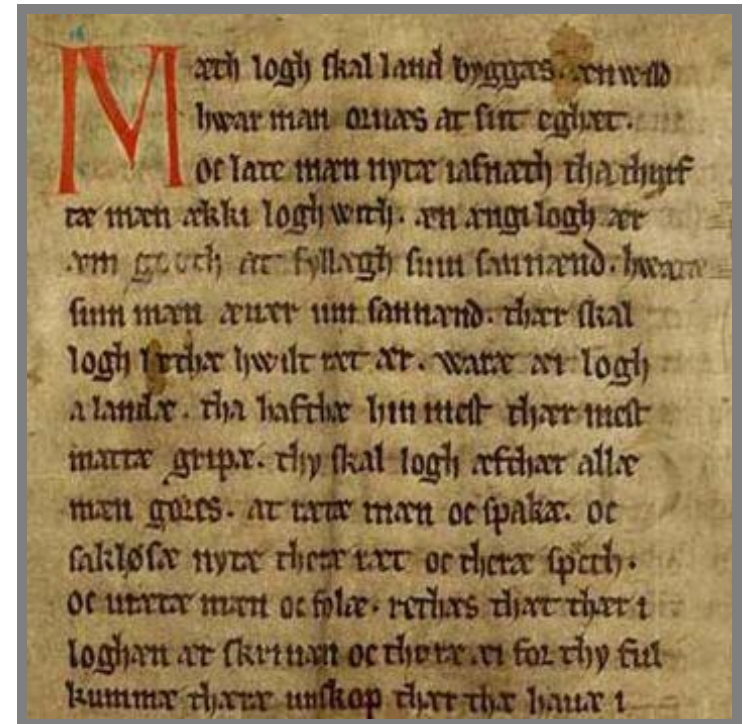 Mæth logh skal land byggæs. æn wild
hwar man ornæs at sint eghæt.
oc late mæn nytæ iafnæth tha thyrf
tæ mæn ækki logh with. æn ængi logh ær
æm gooth at fyllægh sum sannænd. hwaræ
sum mæn æuær um sannænd. thær skal
logh lethæ hwilt ræt ær. waræ æi logh
a landæ. tha hafthæ hin mest thær mest
mattæ gripæ. thy skal logh æfthær allæ
mæn gøres. at rætæ mæn oc spakæ. oc
sakløsæ nytæ theræ ræt oc theræ spæth.
oc urætæ mæn oc folæ. rethæs thæt thær i
loghæn ær skriuan oc thoræ æi for thy ful
kummæ theræ unskop thær the hauæ i